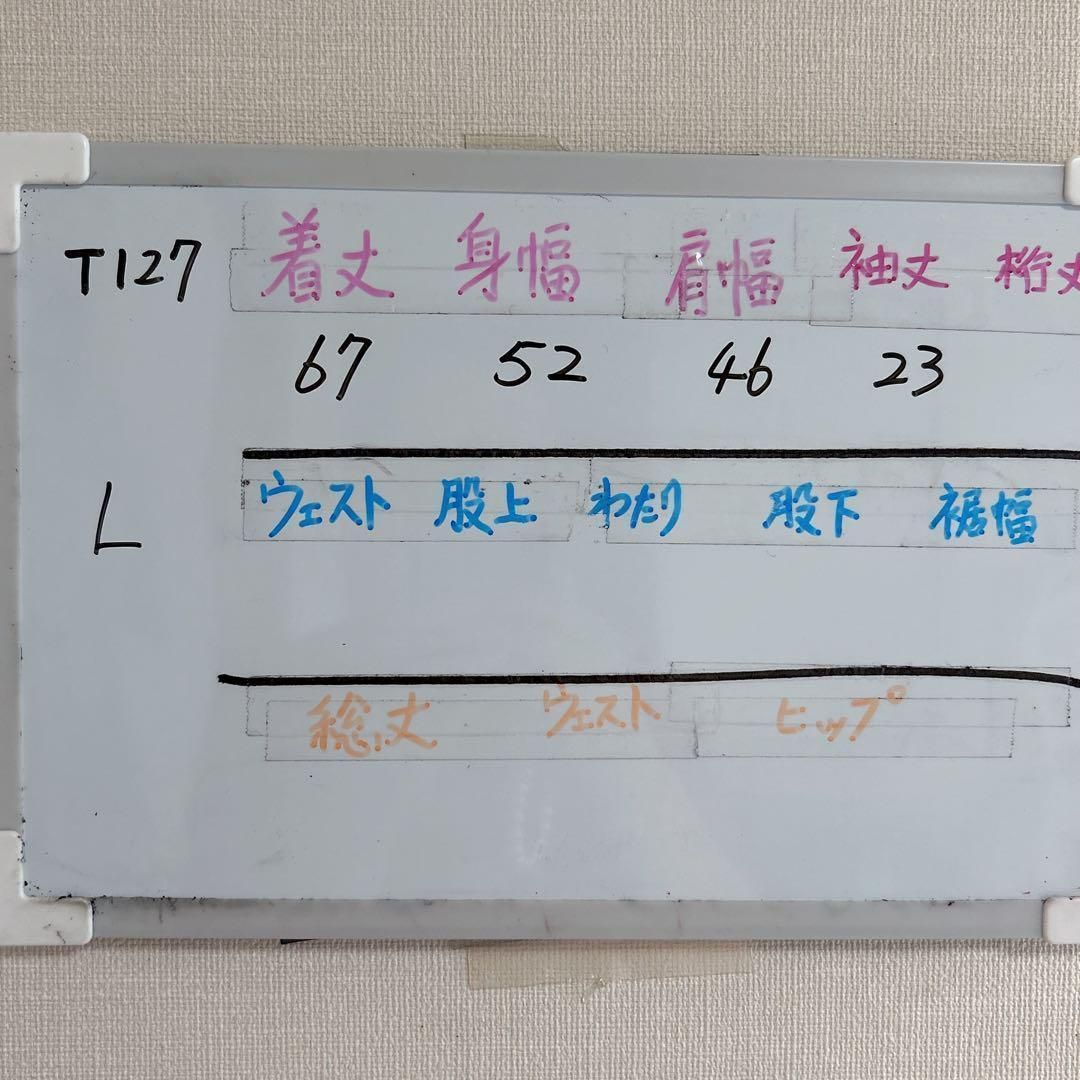 T127 着丈 身幅 肩幅 袖丈 裄丈
67 52 46 23
L ウェスト 股上 わたり 股下 裾幅
総丈 ウェスト ヒップ